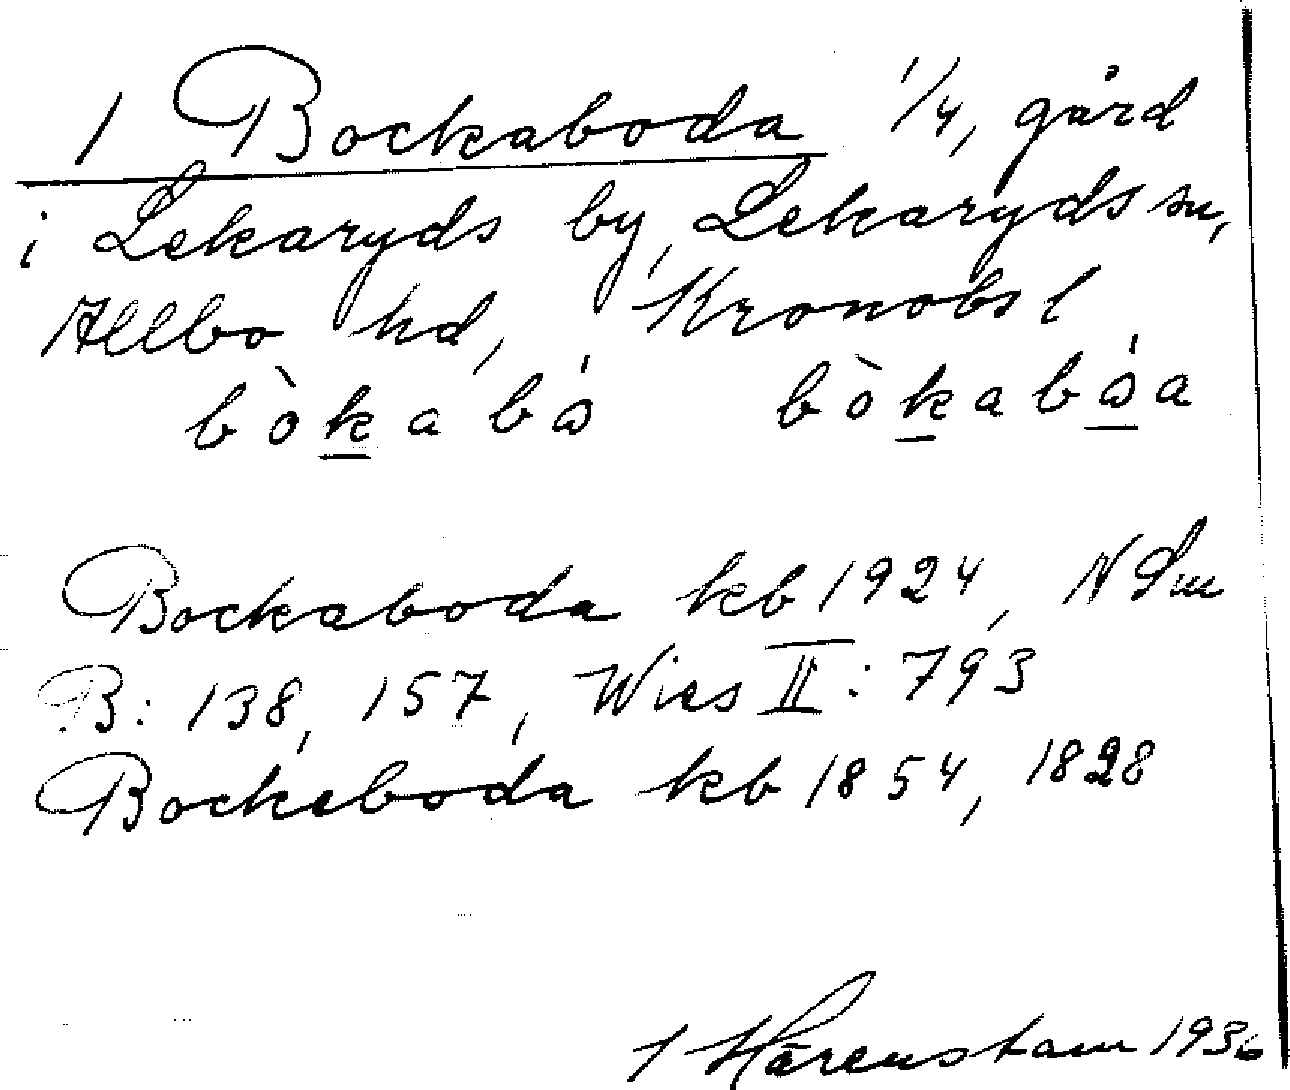 1 Bockaboda 1/4, gård
i Lekaryds by, Lekaryds sn,
Allbo hd, Kronobs l
bòkabá bòkabáa
Bockaboda kb 1924, NSm
B: 138, 157, Wies II: 793
Bockeboda kb 1854, 1828
Härenstam 1936